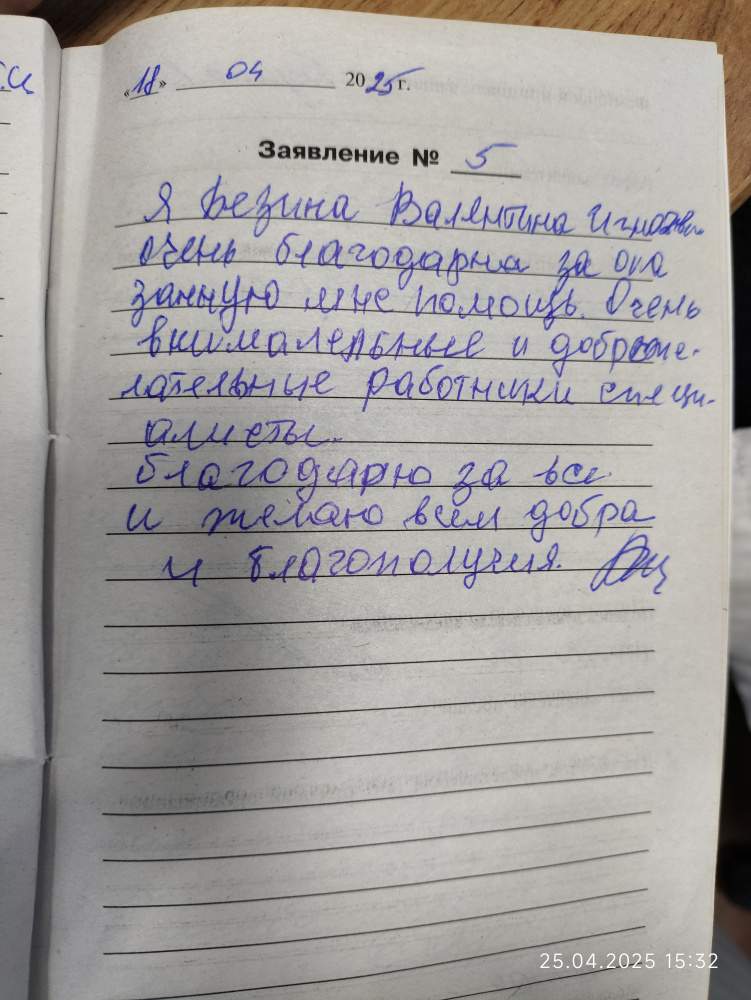 «18» 04 2025 г.
Заявление № 5
Я Безина Валентина
очень благодарна за ока
занную мне помощь. Очень
внимательные и доброже-
лательные работники специ-
алисты.
благодарю за все
и желаю всем добра
и благополучия.
25.04.2025 15:32